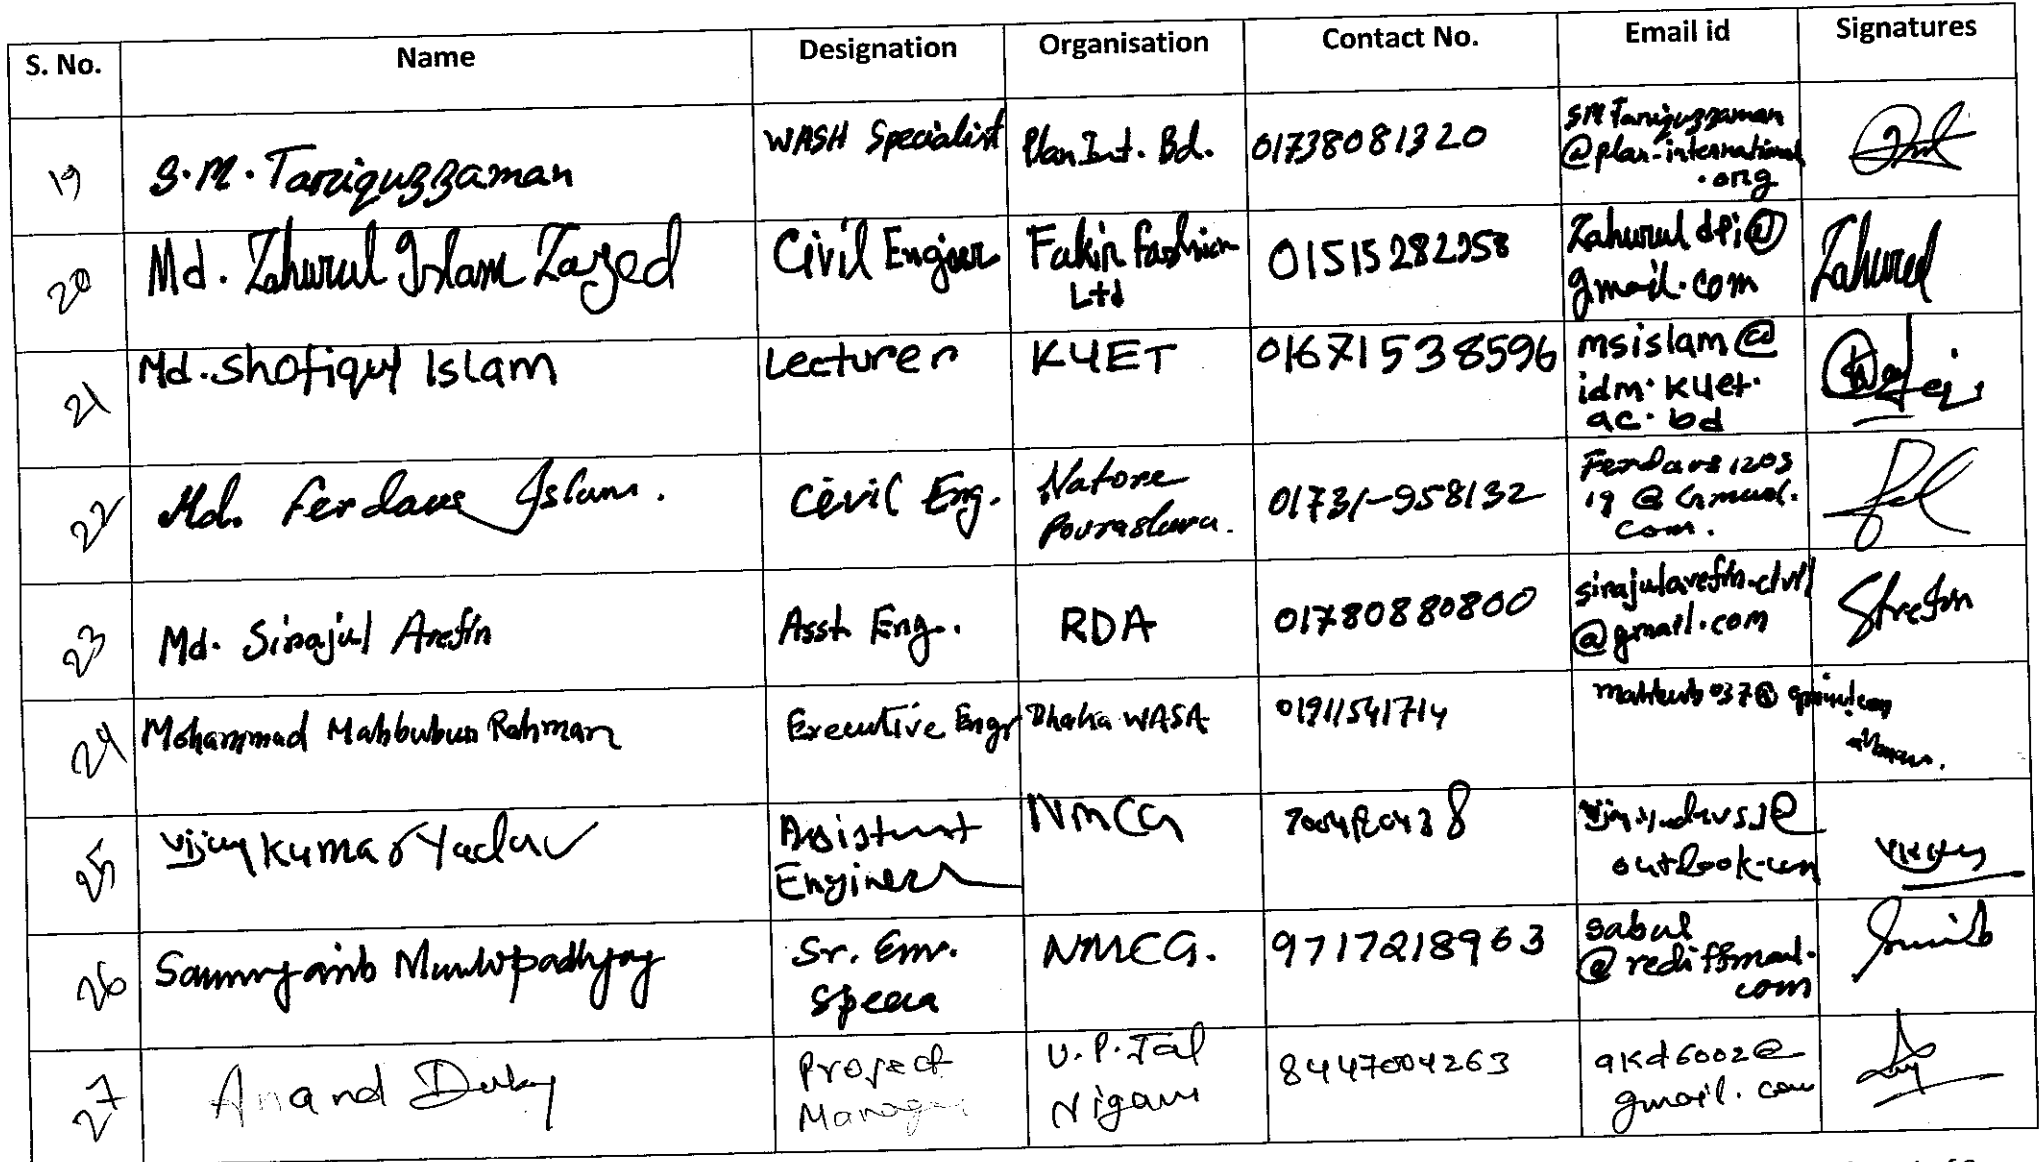 S. No. Name Designation Organisation Contact No. Email id Signatures
19 S.M. Tariquzzaman WASH Specialist Plan Int. Bd. 01738081320 SM Tariquzzaman
@plan-international
.org
20 Md. Zahurul Islam Zayed Civil Engineer Fakir Fashion 01515282258 Zahurul dpi@
Ltd gmail.com Zahurul
21 Md. Shofiqul Islam Lecturer KUET 01671538596 msislam@
idm.kuet.
ac.bd
22 Md. Ferdaus Islam. Civil Eng. Natore 01731-958132 Ferdaus1203
Pourashava. 19@Gmail.
com.
23 Md. Sirajul Arefin Asst. Eng. RDA 01780880800 sirajularefin.civil
@gmail.com
24 Mohammad Mahbubur Rahman Executive Engr Dhaka WASA 01911541714
25 Vijay Kumar Yadav Assistant NMCG
Engineer outlook.com
26 Mukhopadhyay Sr. Env. NMCG. 9717218963 sabul
@rediffmail.
com
27 Anand Dubey Project U.P. Jal 8447004263 akd6002@
Manager Nigam gmail.com